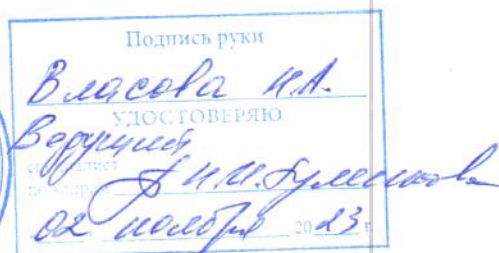 Подпись руки
Власова И.А.
УДОСТОВЕРЯЮ
Ведущий
специалист
по кадрам
02 ноября 2023 г.